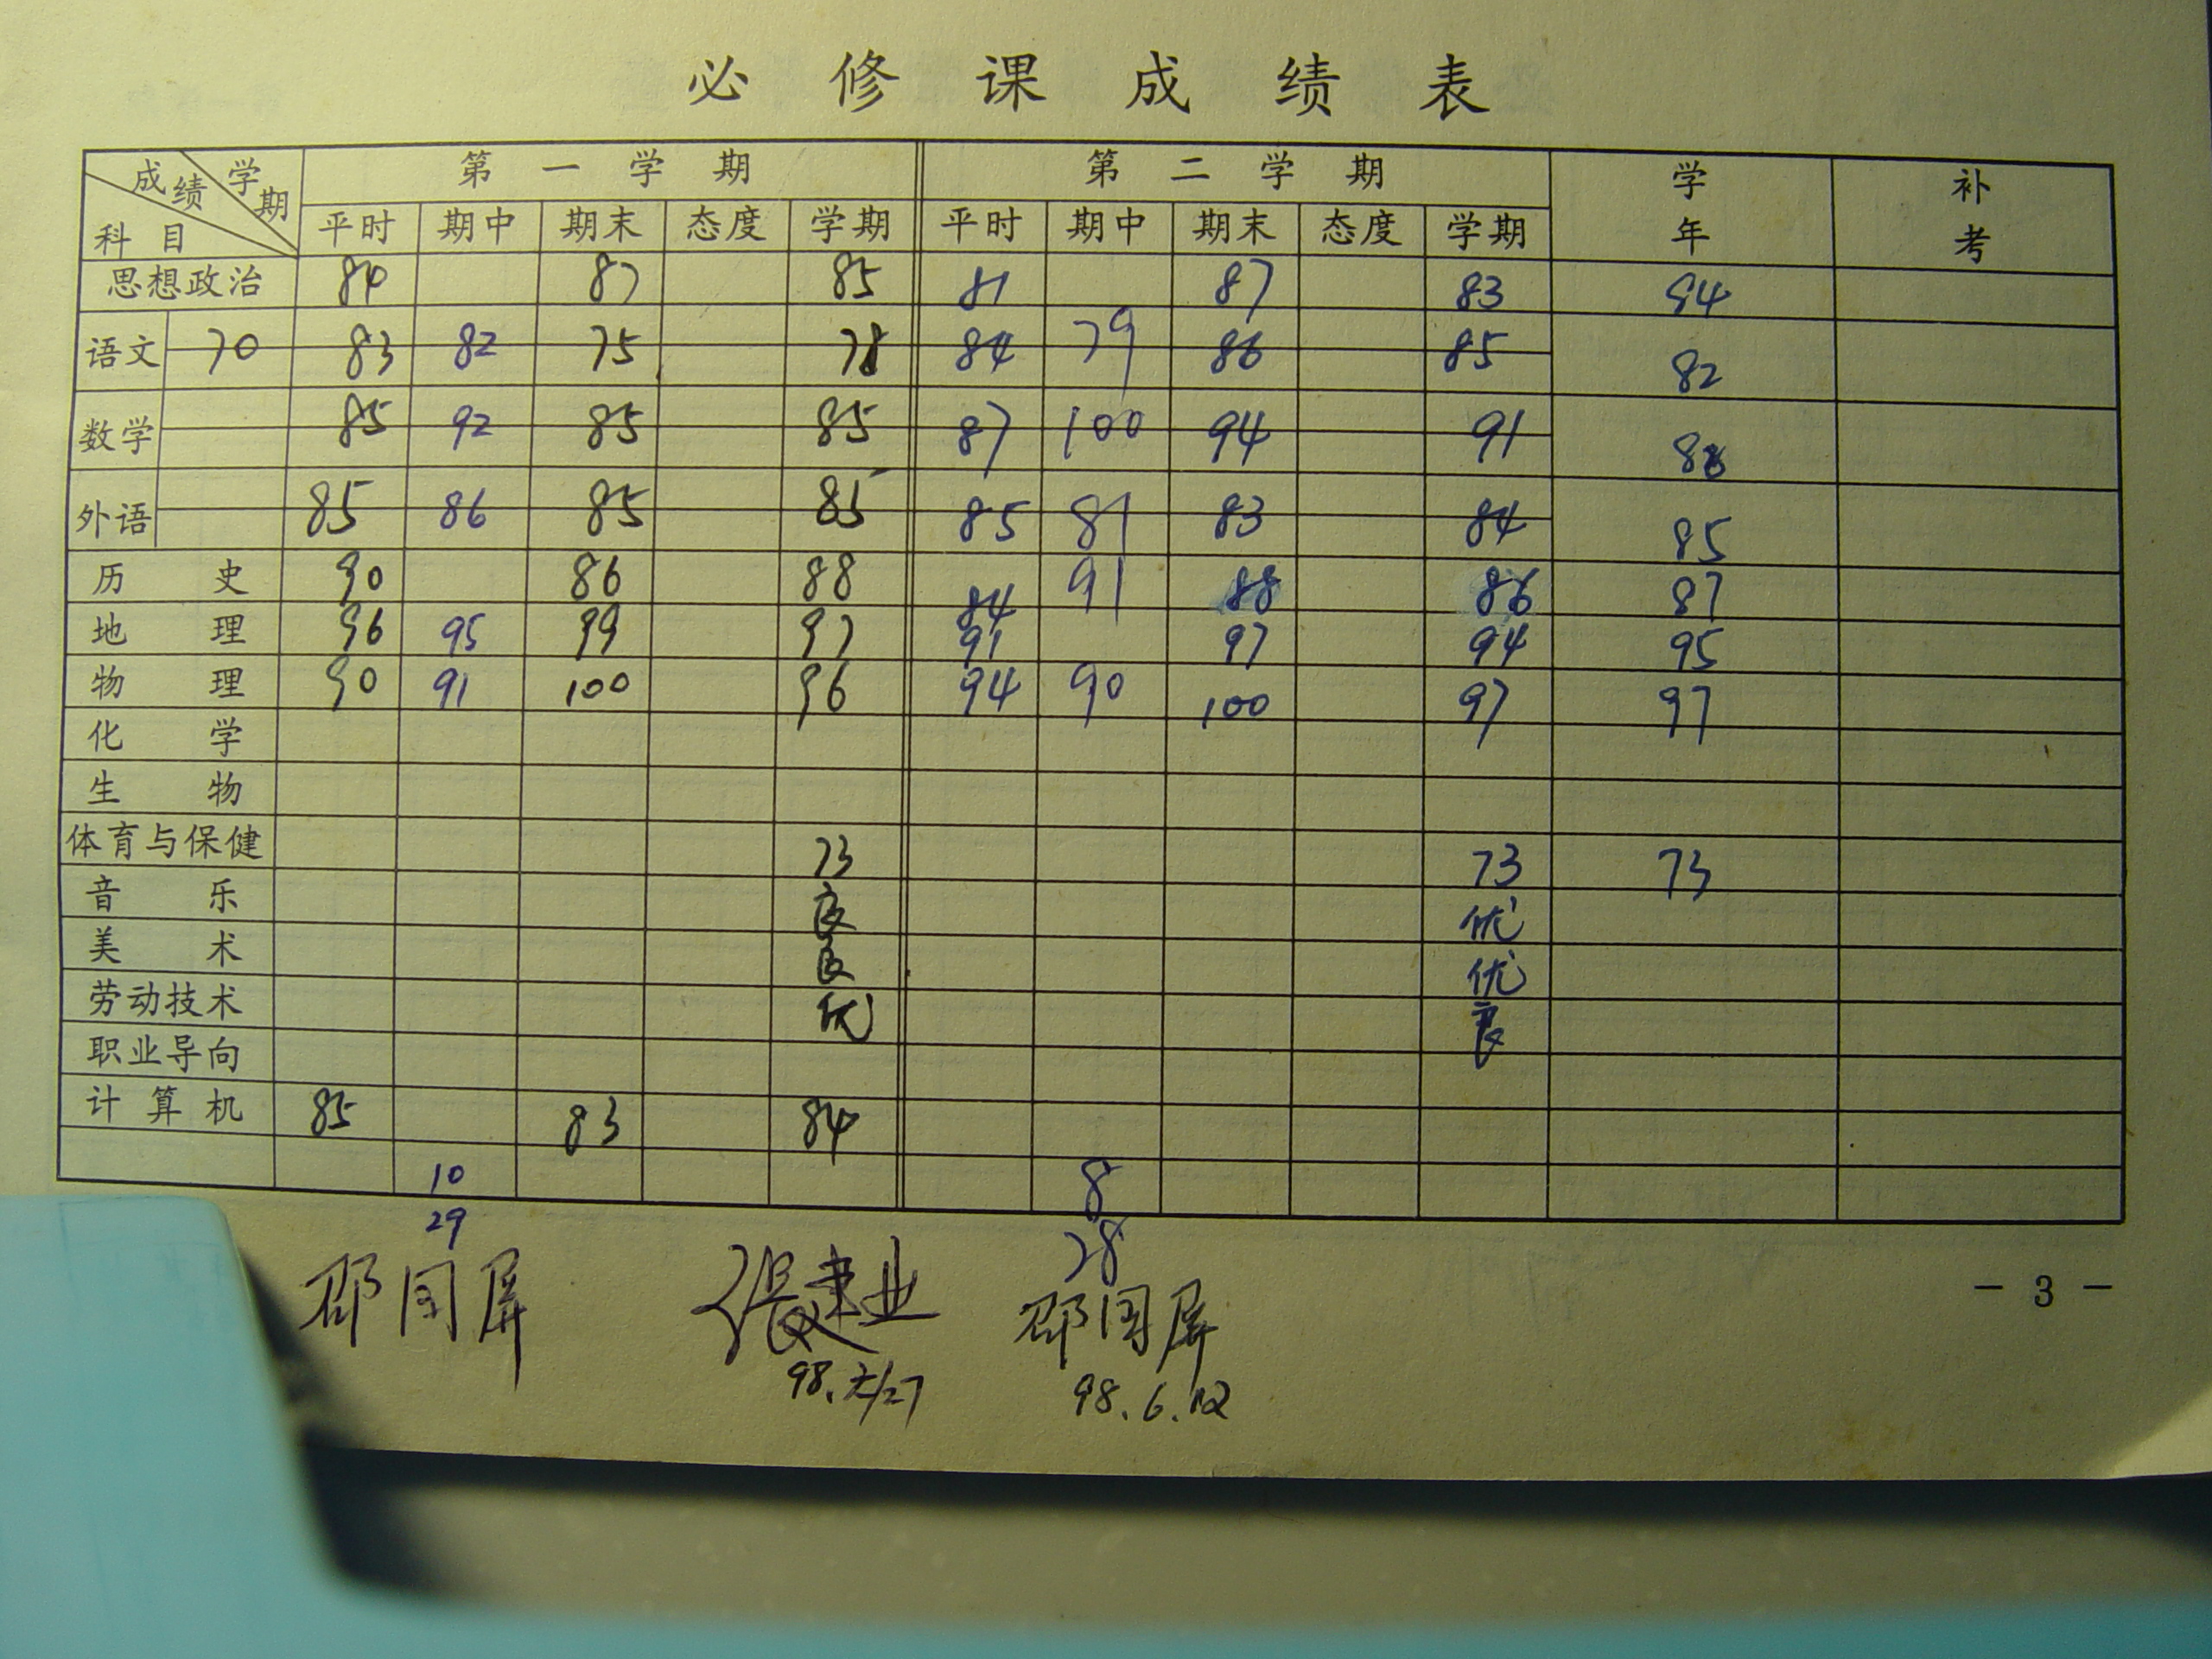 必修课成绩表
成绩 学期 科目 第一学期 第二学期 学年 补考
平时 期中 期末 态度 学期 平时 期中 期末 态度 学期
思想政治 84 87 85 81 87 83 84
语文 70 83 82 75 78 84 79 86 85 82
数学 85 92 85 85 87 100 94 91 88
外语 85 86 85 85 85 81 83 84 85
历史 90 86 88 84 91 88 86 87
地理 96 95 99 97 91 97 94 95
物理 90 91 100 96 94 90 100 97 97
化学
生物
体育与保健 73 73 73
音乐 良 优
美术 良 优
劳动技术 优 良
职业导向
计算机 85 83 84
10 8
29 28
邵国屏 张建业 邵国屏
98.元/27 98.6.
- 3 -